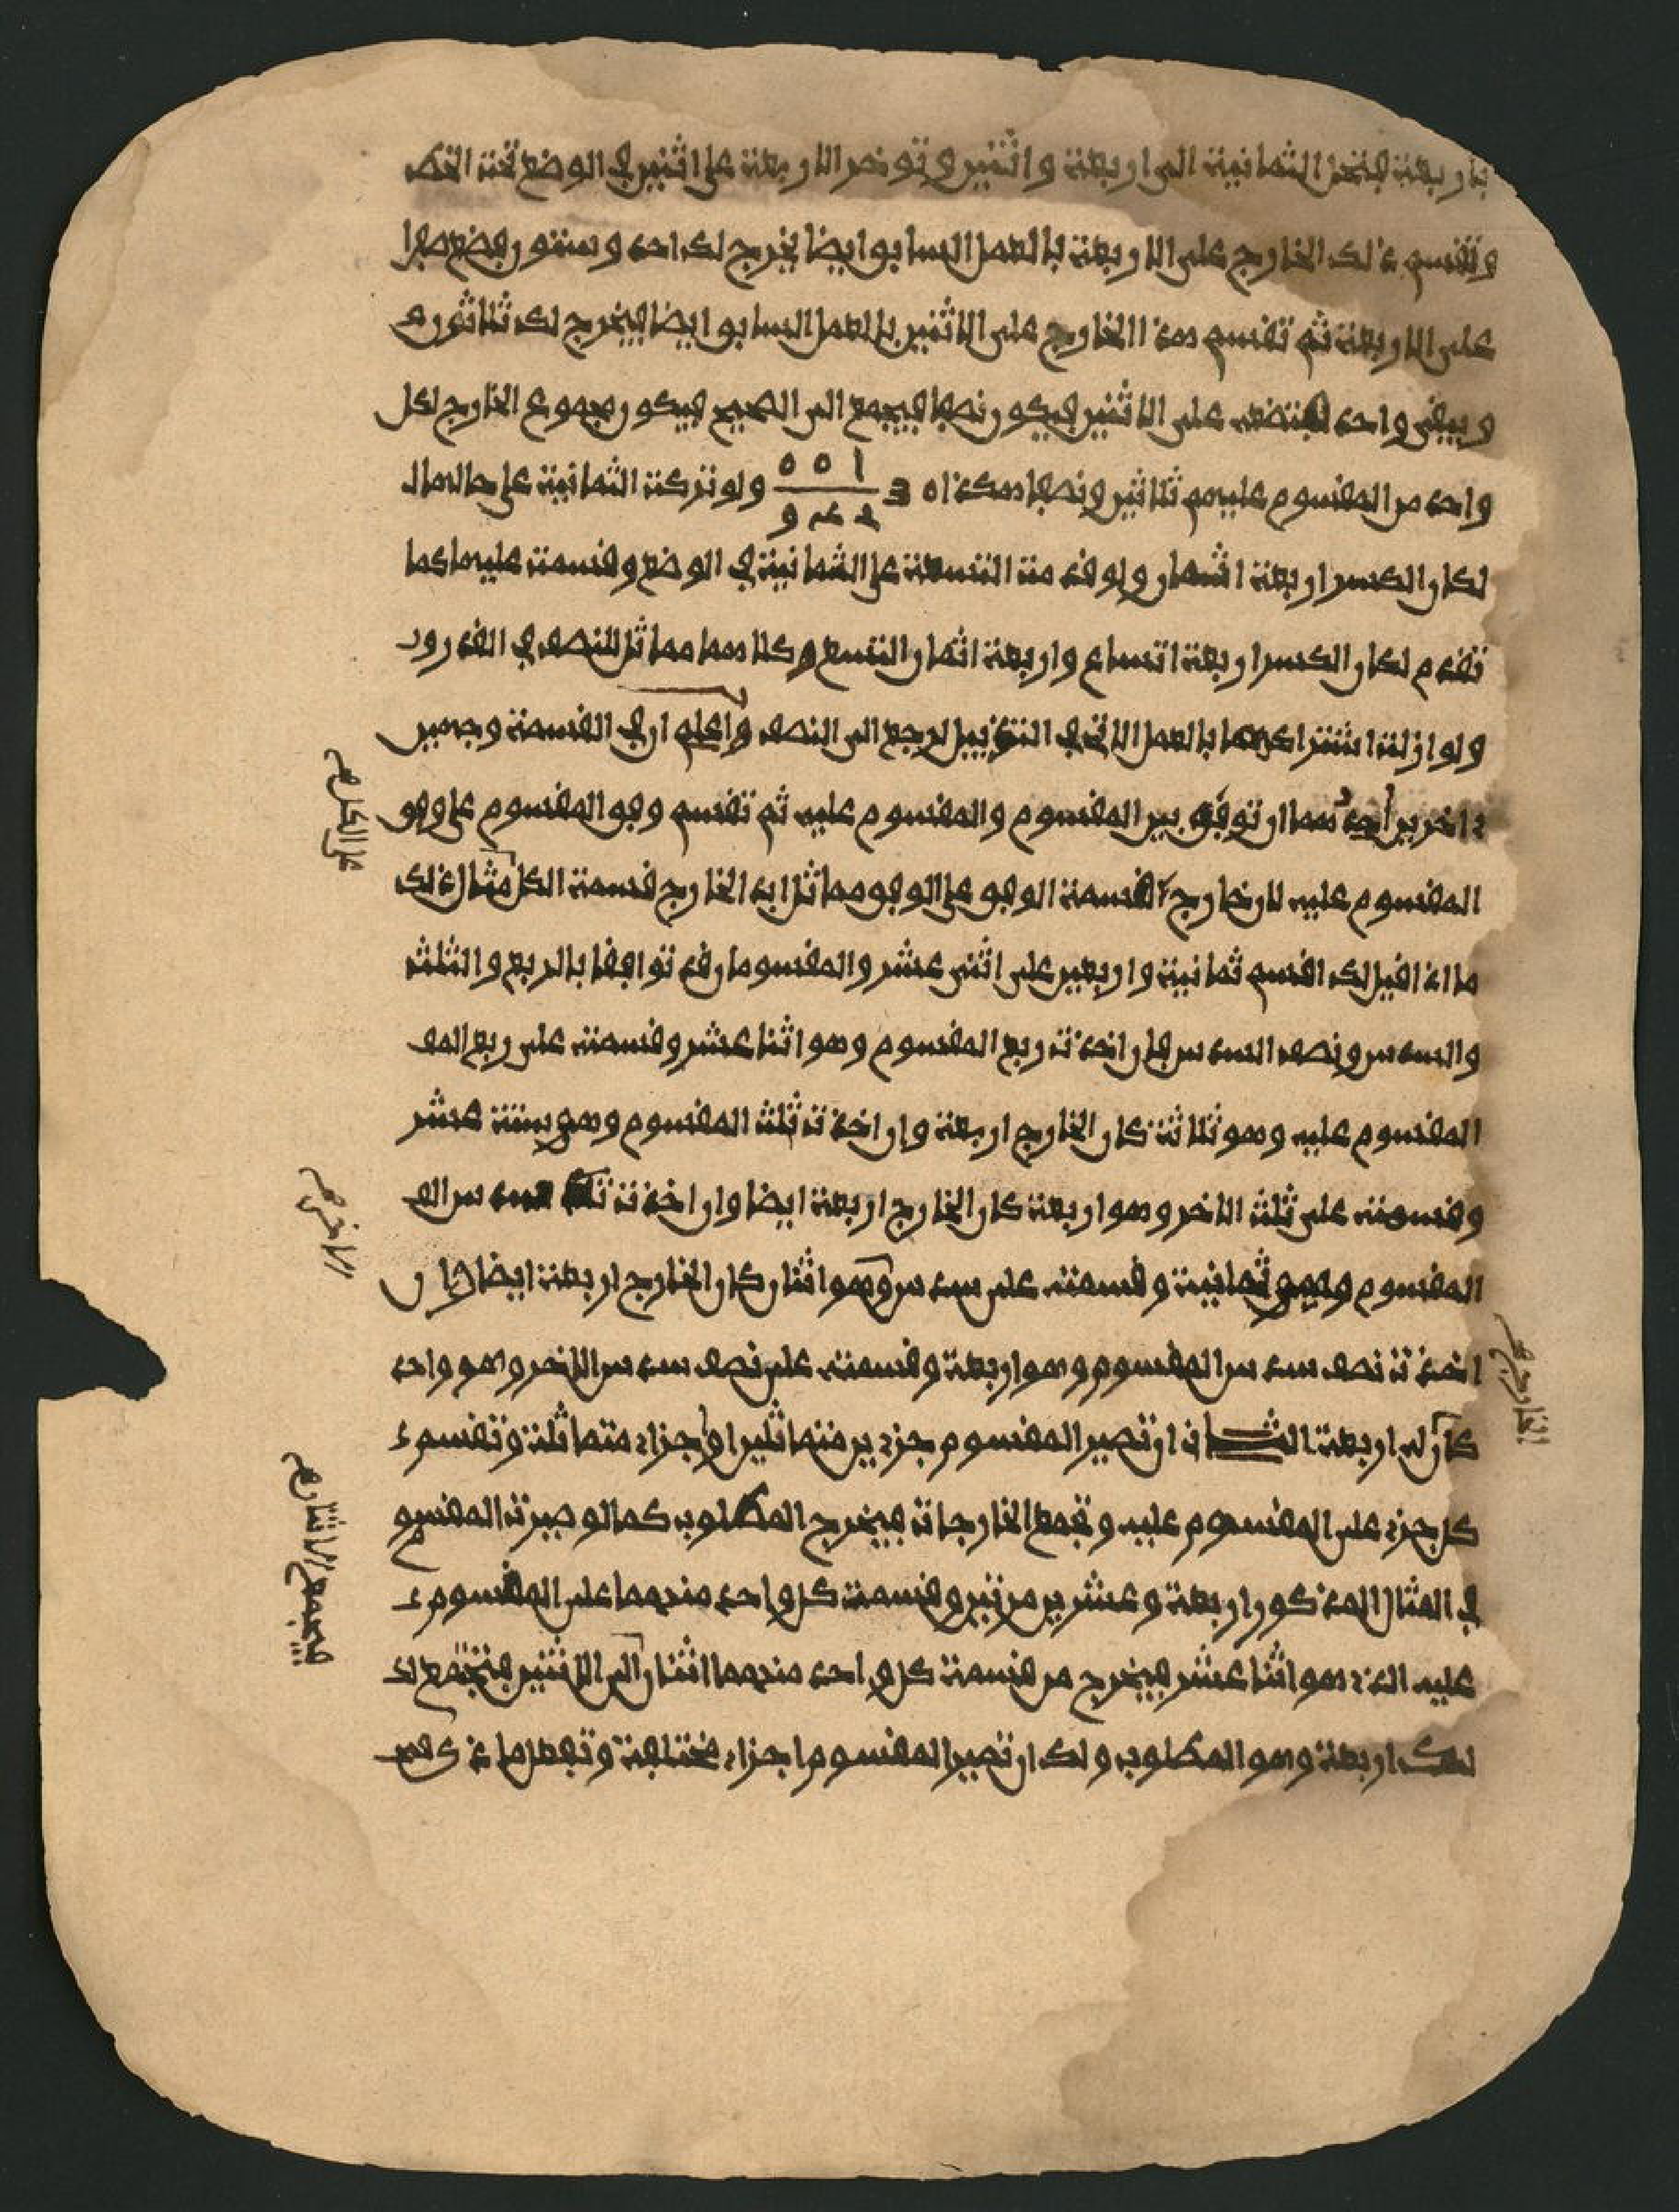 باربعة فتحل الثمانية الى اربعة واثنين وتوخر الاربعة على اثنين في الوضع تحت الخط
وتقسم ذلك الخارج على الاربعة بالعمل السابق ايضا يخرج لك احد وستون فضع صفرا
على الاربعة ثم تقسم هذا الخارج على الاثنين بالعمل السابق ايضا فيخرج لك ثلاثون
ويبقى واحد فتضعه على الاثنين فيكون نصفا فيجمع الى الصحيح فيكون مجموع الخارج لكل
واحد من المقسوم عليهم ثلاثين ونصفا هكذا ولو تركت الثمانية على حالها
لكان الكسر اربعة اثمان ولو قدمت التسعة على الثمانية في الوضع وقسمت عليهما كما
تقدم لكان الكسر اربعة اتساع واربعة اثمان التسع وكلاهما مماثل للنصف في القدر ود
ولو ازلت اشتراكهما بالعمل الاتي في التذييل لرجع الى النصف واعلم ان في القسمة وجهين
ءاخرين احدهما ان توفق بين المقسوم والمقسوم عليه ثم تقسم وفق المقسوم على وفق
المقسوم عليه لان خارج القسمة الوفق على الوفق مماثل ابد الخارج قسمة الكل مثال ذلك
ما اذا قيل لك اقسم ثمانية واربعين على اثني عشر والمقسومان قد توافقا بالربع والثلث
والسدس ونصف السدس فان اخذت ربع المقسوم وهو اثنا عشر وقسمته على ربع المقـ
المقسوم عليه وهو ثلاثة كان الخارج اربعة وان اخذت ثلث المقسوم وهو ستة عشر
وقسمته على ثلث الاخر وهو اربعة كان الخارج اربعة ايضا وان اخذت سدس المـ
المقسوم وهو ثمانية وقسمته على سدس وهو اثنان كان الخارج اربعة ايضا وان
اخذت نصف سدس المقسوم وهو اربعة وقسمته على نصف سدس الاخر وهو واحد
كان له اربعة الثاني ان تصير المقسوم جزءين متماثلين او اجزاء متماثلة وتقسم
كل جزء على المقسوم عليه وتجمع الخارجات فيخرج المطلوب كما لو صيرت المقسوم
في المثال المذكور اربعة وعشرين مرتين وقسمت كل واحد منهما على المقسوم
عليه الذي هو اثنا عشر فيخرج من قسمة كل واحد منهما اثنان الى الاثنين فتجتمع لد
لك اربعة وهو المطلوب ولك ان تصير المقسوم اجزاء مختلفة وتفعل ما ذكر
على الكل صح
الاخر صح
الخارج صح
فيجمع الاثنان صح